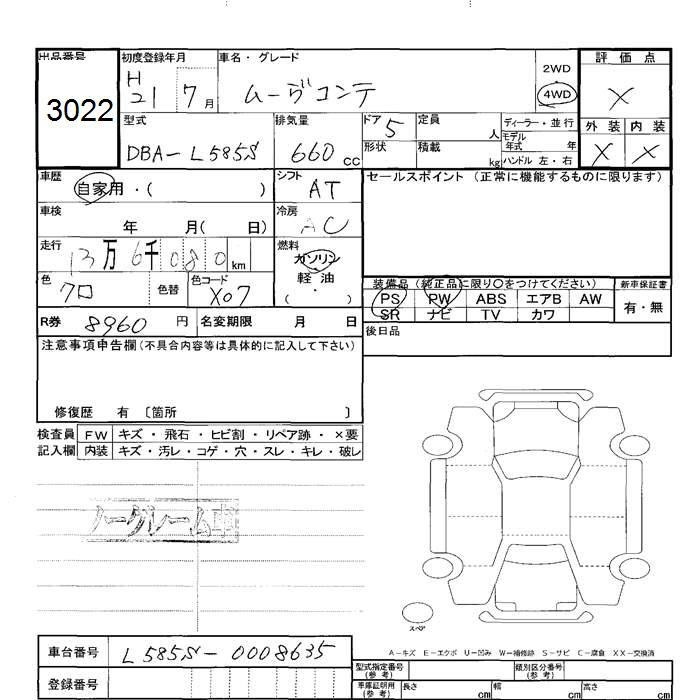 出品番号 初度登録年月 車名・グレード 評価点
3022 H 21 7月 ムーヴコンテ 2WD 4WD X
型式 排気量 ドア 定員 ディーラー・並行 外装 内装
DBA-L585S 660cc 5 人 モデル年式 年 X X
形状 積載 kg ハンドル 左・右
車歴 シフト セールスポイント (正常に機能するものに限ります)
自家用・( ) AT
車検 冷房
年 月( 日) AC
走行 燃料
13万6千080km ガソリン
軽油
( ・ )
色 色替 色コード 装備品 (純正品に限り〇をつけてください) 新車保証書
クロ X07 PS PW ABS エアB AW 有・無
SR ナビ TV カワ
R券 8960円 名変期限 月 日 後日品
注意事項申告欄(不具合内容等は具体的に記入して下さい)
修復歴 有 〔箇所 〕
検査員 FW キズ・飛石・ヒビ割・リペア跡・×要
記入欄 内装 キズ・汚レ・コゲ・穴・スレ・キレ・破レ
ノークレーム車
スペア
A-キズ E-エクボ U-凹み W-補修跡 S-サビ C-腐食 XX-交換済
車台番号 L585S-0008635 型式指定番号(参考) 類別区分番号(参考)
登録番号 車庫証明用(参考) 長さ cm 幅 cm 高さ cm